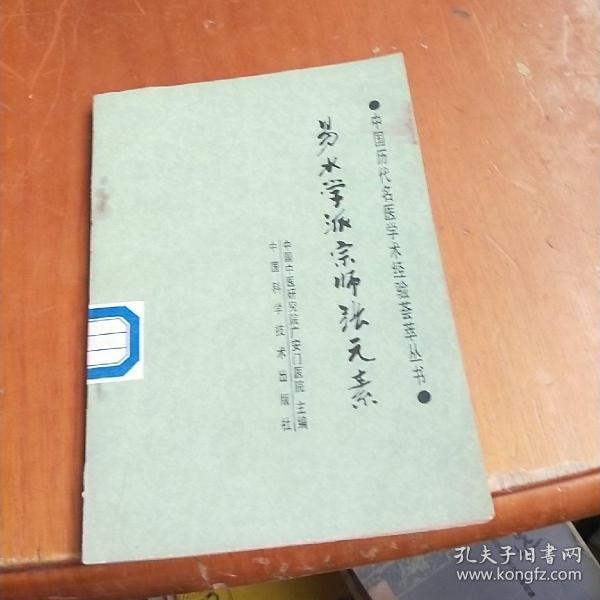 ●中国历代名医学术经验荟萃丛书●
易水学派宗师张元素
中国中医研究院广安门医院 主编
中国科学技术出版社
孔夫子旧书网
www.kongfz.com